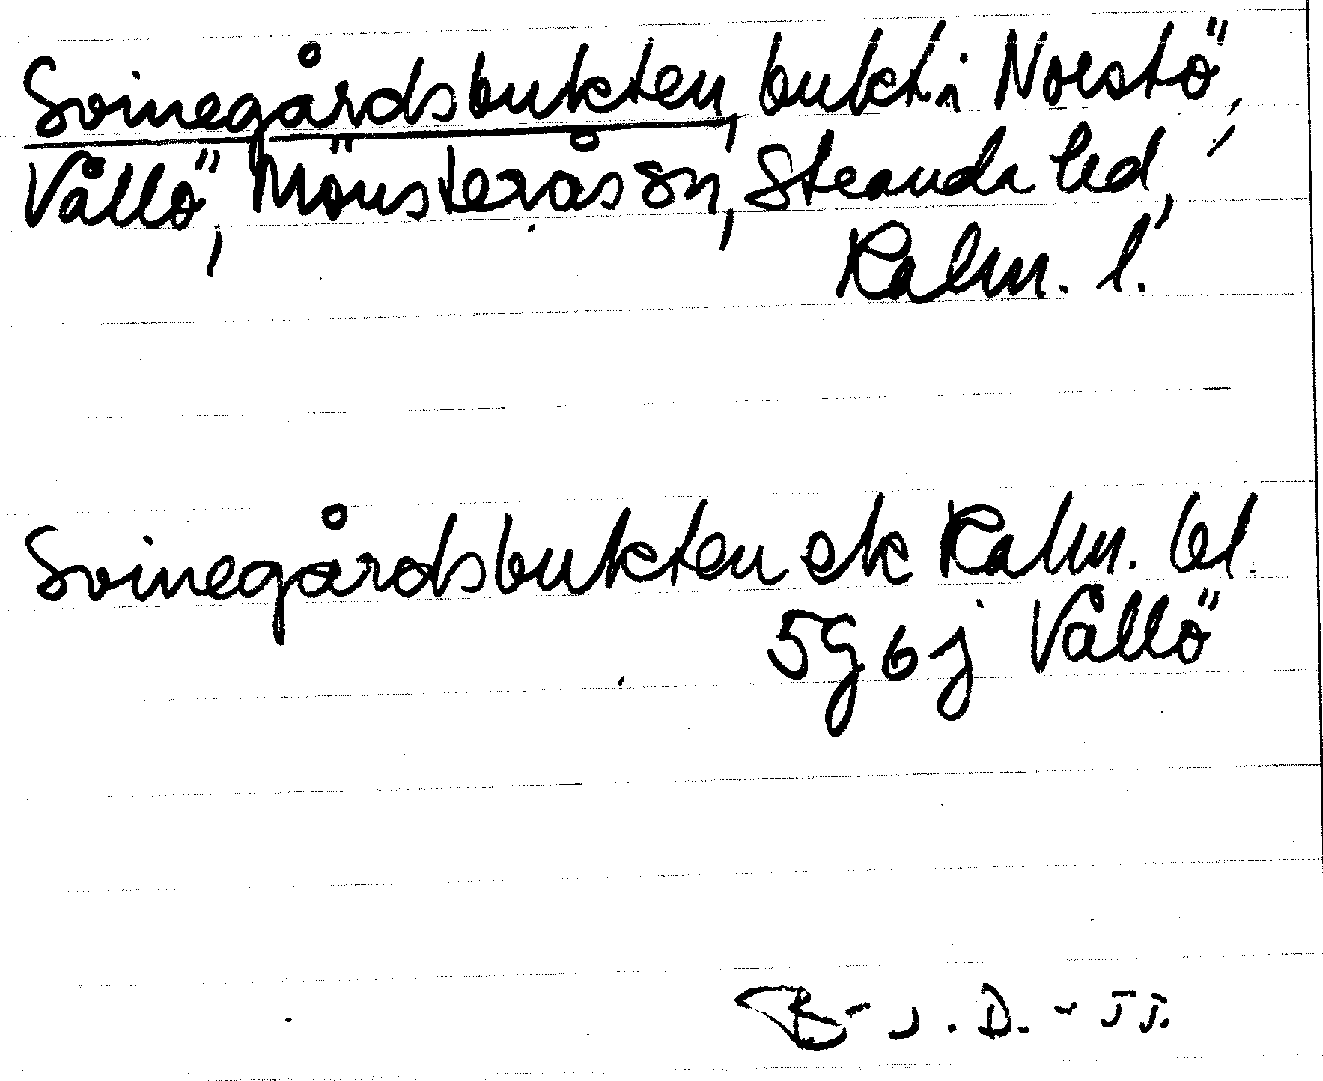 Svinegårdsbukten, bukt i Norstö,
Vållö, Mönsterås sn, Stranda hd,
Kalm. l.
Svinegårdsbukten ek Kalm. bl.
5g 6 j Vållö
B-J.D.-55.